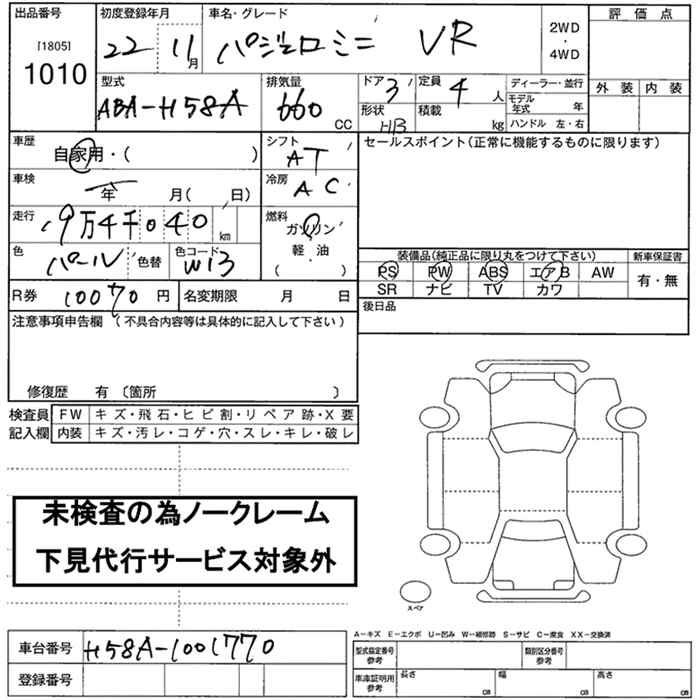 出品番号 初度登録年月 車名・グレード 評価点
[1805]
1010 22 11月 パジェロミニ VR 2WD・4WD
外装 内装
型式 排気量 ドア 定員 ディーラー・並行
ABA-H58A 660CC 3 4人 モデル年式 年
形状 積載 ハンドル 左・右
HB kg
車歴 シフト セールスポイント(正常に機能するものに限ります)
自家用・( ) AT
車検 冷房
年 月( 日) AC
走行 燃料
9万4千040km ガソリン
軽・油
( )
色 色替 色コード
パール W13
装備品(純正品に限り丸をつけて下さい) 新車保証書
PS PW ABS エアB AW 有・無
SR ナビ TV カワ
R券 10070円 名変期限 月 日
後日品
注意事項申告欄 (不具合内容等は具体的に記入して下さい)
修復歴 有〔箇所 〕
検査員記入欄 FW キズ・飛石・ヒビ割・リペア跡・X要
内装 キズ・汚レ・コゲ・穴・スレ・キレ・破レ
未検査の為ノークレーム
下見代行サービス対象外
スペア
A-キズ E-エクボ U-凹み W-補修跡 S-サビ C-腐食 XX-交換済
車台番号 H58A-1001770
登録番号
型式指定番号参考 類別区分番号参考
車庫証明用参考 長さ cm 幅 cm 高さ cm